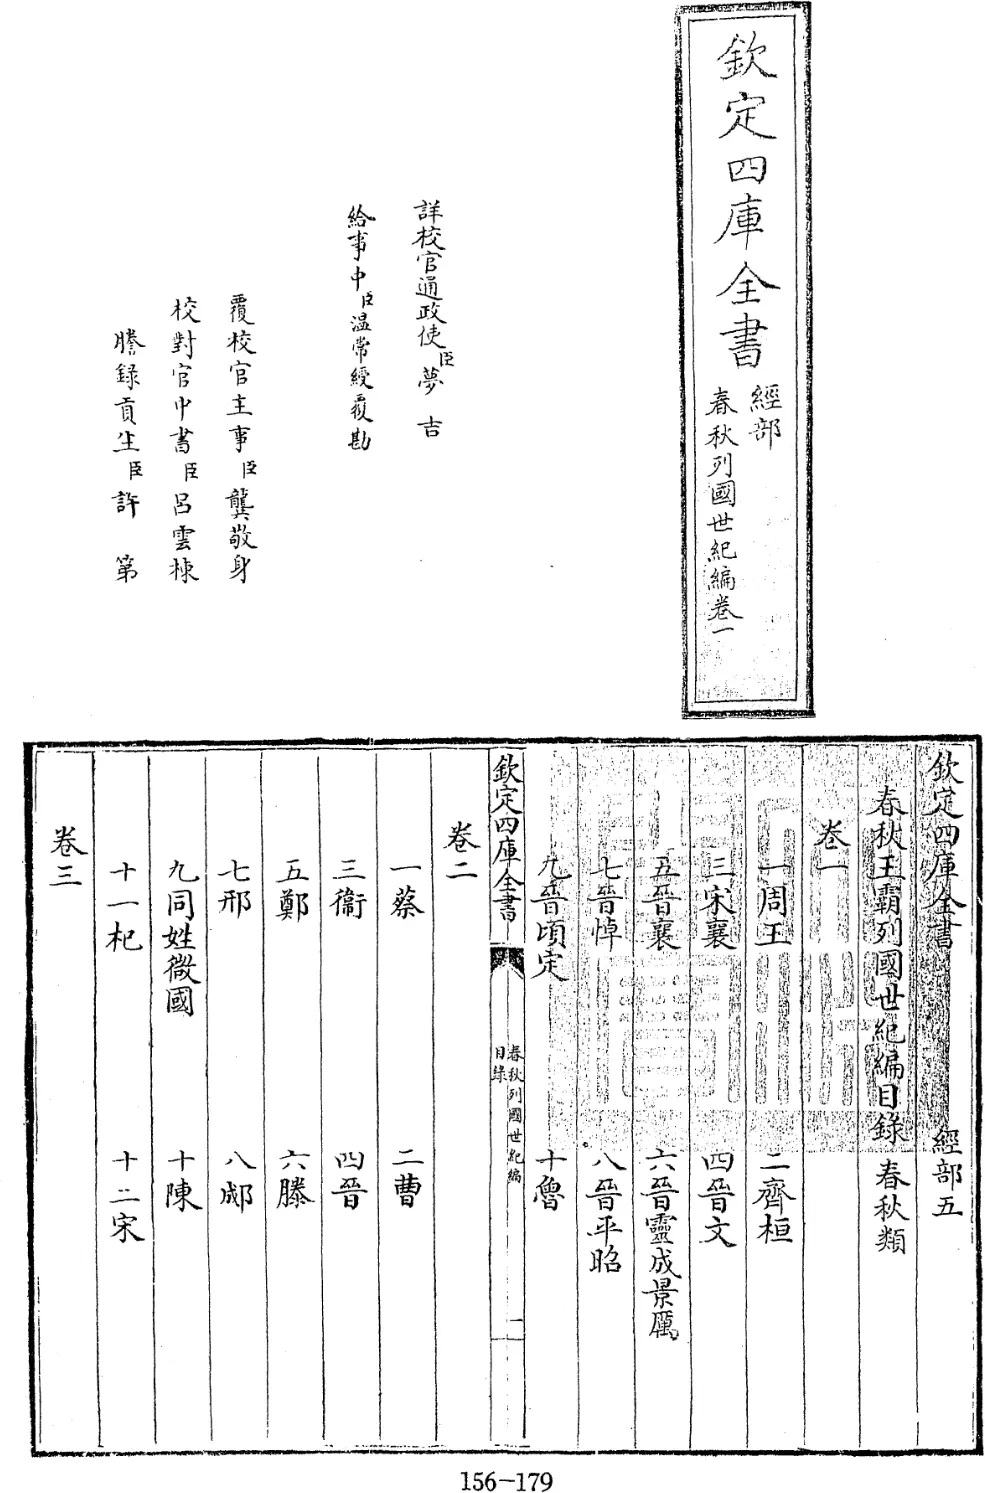 欽定四庫全書
經部
春秋列國世紀編卷一
詳校官通政使臣夢吉
給事中臣温常綬覆勘
覆校官主事臣龔敬身
校對官中書臣呂雲棟
謄錄貢生臣許第
欽定四庫全書 經部五
春秋王霸列國世紀編目錄 春秋類
卷一
一周王 二齊桓
三宋襄 四晉文
五晉襄 六晉靈成景厲
七晉悼 八晉平昭
九晉頃定 十魯
欽定四庫全書
春秋列國世紀編
目錄
一
卷二
一蔡 二曹
三衞 四晉
五鄭 六滕
七邢 八郕
九同姓微國 十陳
十一杞 十二宋
卷三
156-179